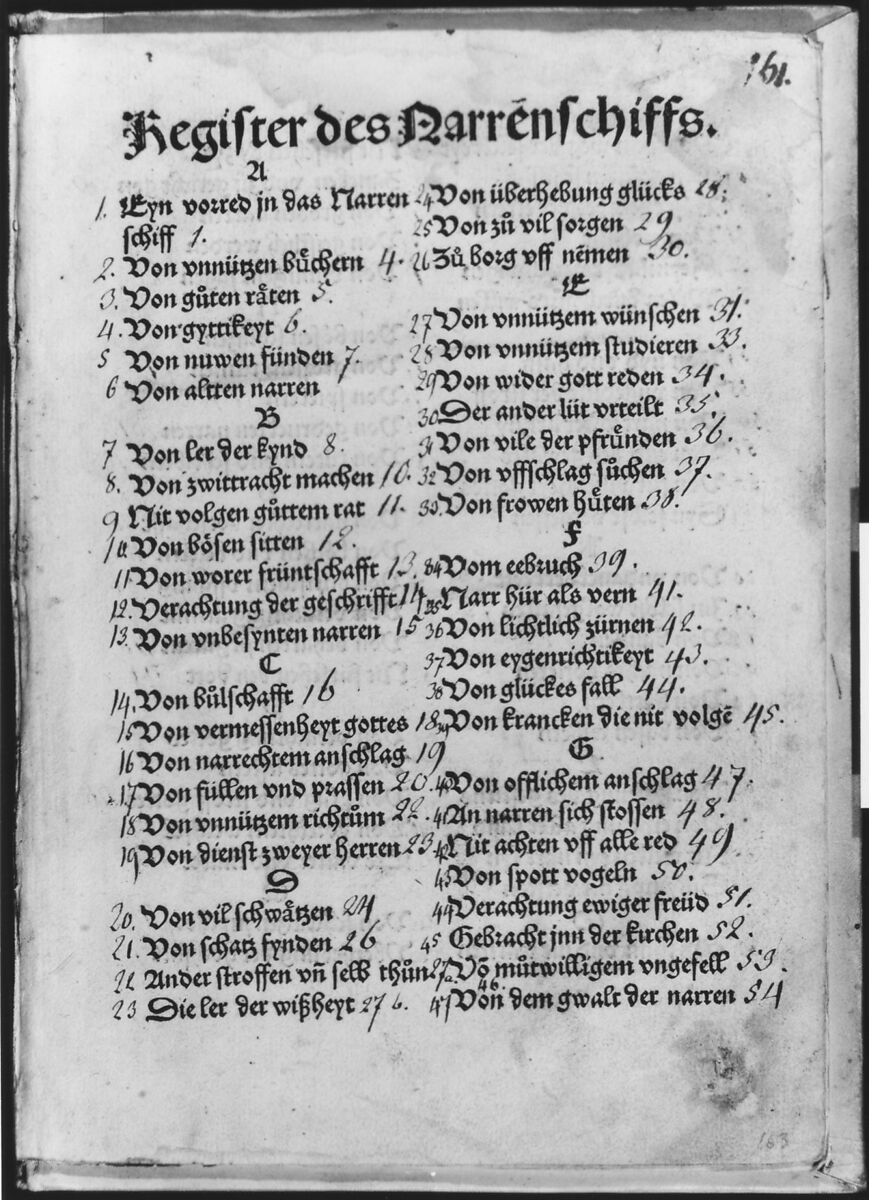 161.
Register des Narrēnschiffs.
A
1. Eyn vorred jn das Narren
schiff 1.
2. Von vnnützen bůchern 4.
3. Von gůten råten 5.
4. Von gyttikeyt 6.
5 Von nuwen fünden 7.
6 Von altten narren
B
7 Von ler der kynd 8.
8. Von zwittracht machen 10.
9 Nit volgen gůttem rat 11.
10 Von bösen sitten 12.
11 Von worer früntschafft 13.
12. Verachtung der geschrifft 14
13. Von vnbesynten narren 15
C
14. Von bůlschafft 16
15 Von vermessenheyt gottes 18
16 Von narrechtem anschlag 19
17 Von füllen vnd prassen 20.
18 Von vnnützem richtům 22.
19 Von dienst zweyer herren 23
D
20. Von vil schwåtzen 24
21. Von schatz fynden 26
22 Ander stroffen vñ selb thůn 27
23 Die ler der wißheyt 27 b.
24 Von überhebung glücks 28.
25 Von zů vil sorgen 29
26 Zů borg vff nēmen 30.
E
27 Von vnnützem wünschen 31.
28 Von vnnützem studieren 33.
29 Von wider gott reden 34.
30 Der ander lüt vrteilt 35.
31 Von vile der pfrůnden 36.
32 Von vffschlag sůchen 37.
33 Von frowen hůten 38.
F
34 Vom eebruch 39.
35 Narr hür als vern 41.
36 Von lichtlich zürnen 42.
37 Von eygenrichtikeyt 43.
38 Von glückes fall 44.
39 Von krancken die nit volgē 45.
G
40 Von offlichem anschlag 47.
41 An narren sich stossen 48.
42 Nit achten vff alle red 49
43 Von spott vogeln 50.
44 Verachtung ewiger freüd 51.
45 Gebracht jnn der kirchen 52.
46 Võ můtwilligem vngefell 53.
47 Von dem gwalt der narren 54
163